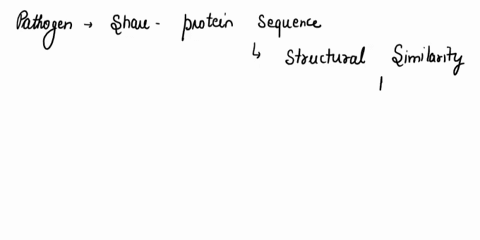 Pathogen → Share - protein sequence
↳ Structural Similarity